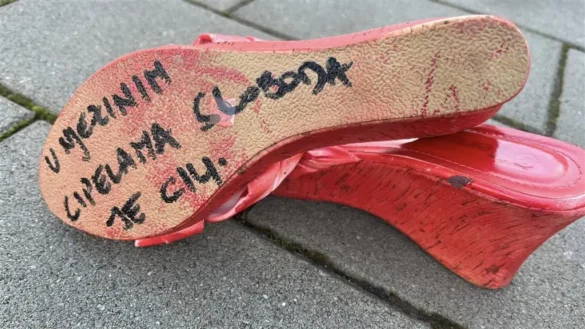 U NJEZINIM
CIPELAMA SLOBODA
JE CILJ.